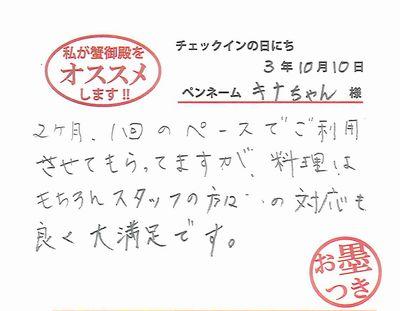 私が蟹御殿を
オススメ
します!!
チェックインの日にち
3年10月10日
ペンネーム キナちゃん 様
2ヶ月、1回のペースでご利用
させてもらってますが、料理は
もちろんスタッフの方々の対応も
良く大満足です。
お墨
つき